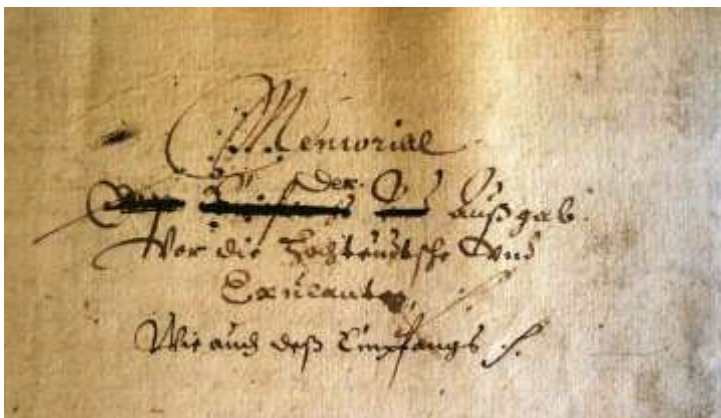 Memorial
der Außgab.
Vor die Hochteutsche Vnd
Exulanten,
Wie auch deß Empfangs